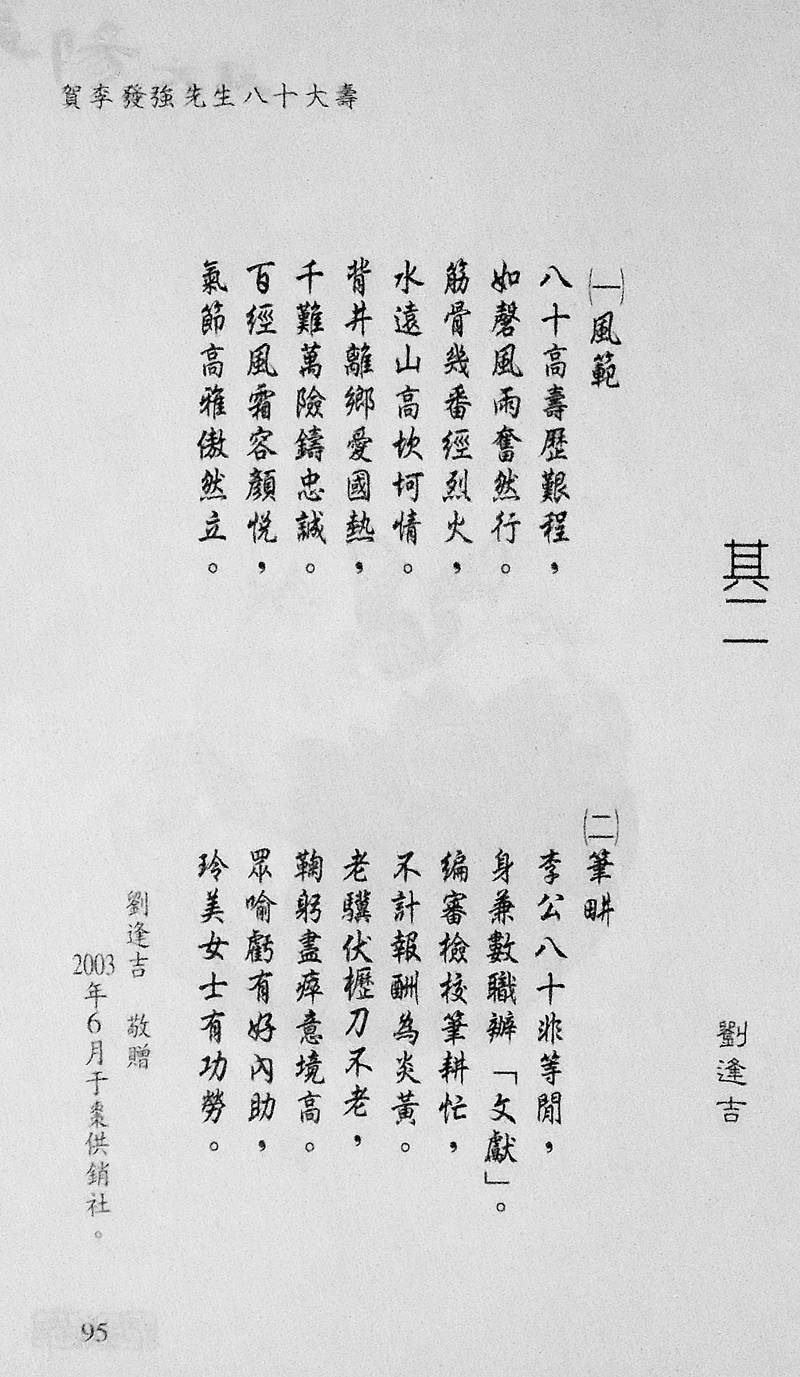 賀李發強先生八十大壽
其二
劉逢吉
㈠風範
八十高壽歷艱程，
如磬風雨奮然行。
筋骨幾番經烈火，
水遠山高坎坷情。
背井離鄉愛國熱，
千難萬險鑄忠誠。
百經風霜容顏悅，
氣節高雅傲然立。
㈡筆畊
李公八十非等閒，
身兼數職辦「文獻」。
編審檢校筆耕忙，
不計報酬為炎黃。
老驥伏櫪刀不老，
鞠躬盡瘁意境高。
眾喻虧有好內助，
玲美女士有功勞。
劉逢吉　敬贈
2003年6月于棗供銷社。
95